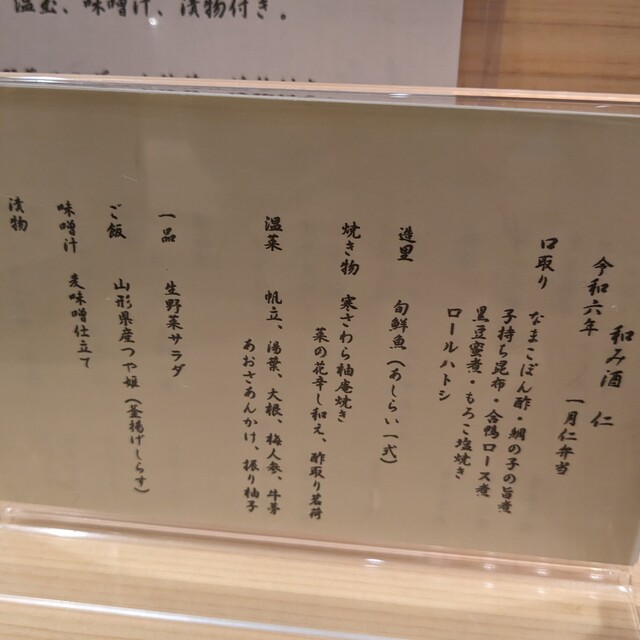 温玉、味噌汁、漬物付き。
和み酒 仁
令和六年 一月仁弁当
口取り なまこぽん酢・鯛の子の旨煮
子持ち昆布・合鴨ロース煮
黒豆蜜煮・もろこ塩焼き
ロールハトシ
造里 旬鮮魚(あしらい一式)
焼き物 寒さわら柚庵焼き
菜の花辛し和え、酢取り茗荷
温菜 帆立、湯葉、大根、梅人参、牛蒡
あおさあんかけ、振り柚子
一品 生野菜サラダ
ご飯 山形県産つや姫(釜揚げしらす)
味噌汁 麦味噌仕立て
漬物